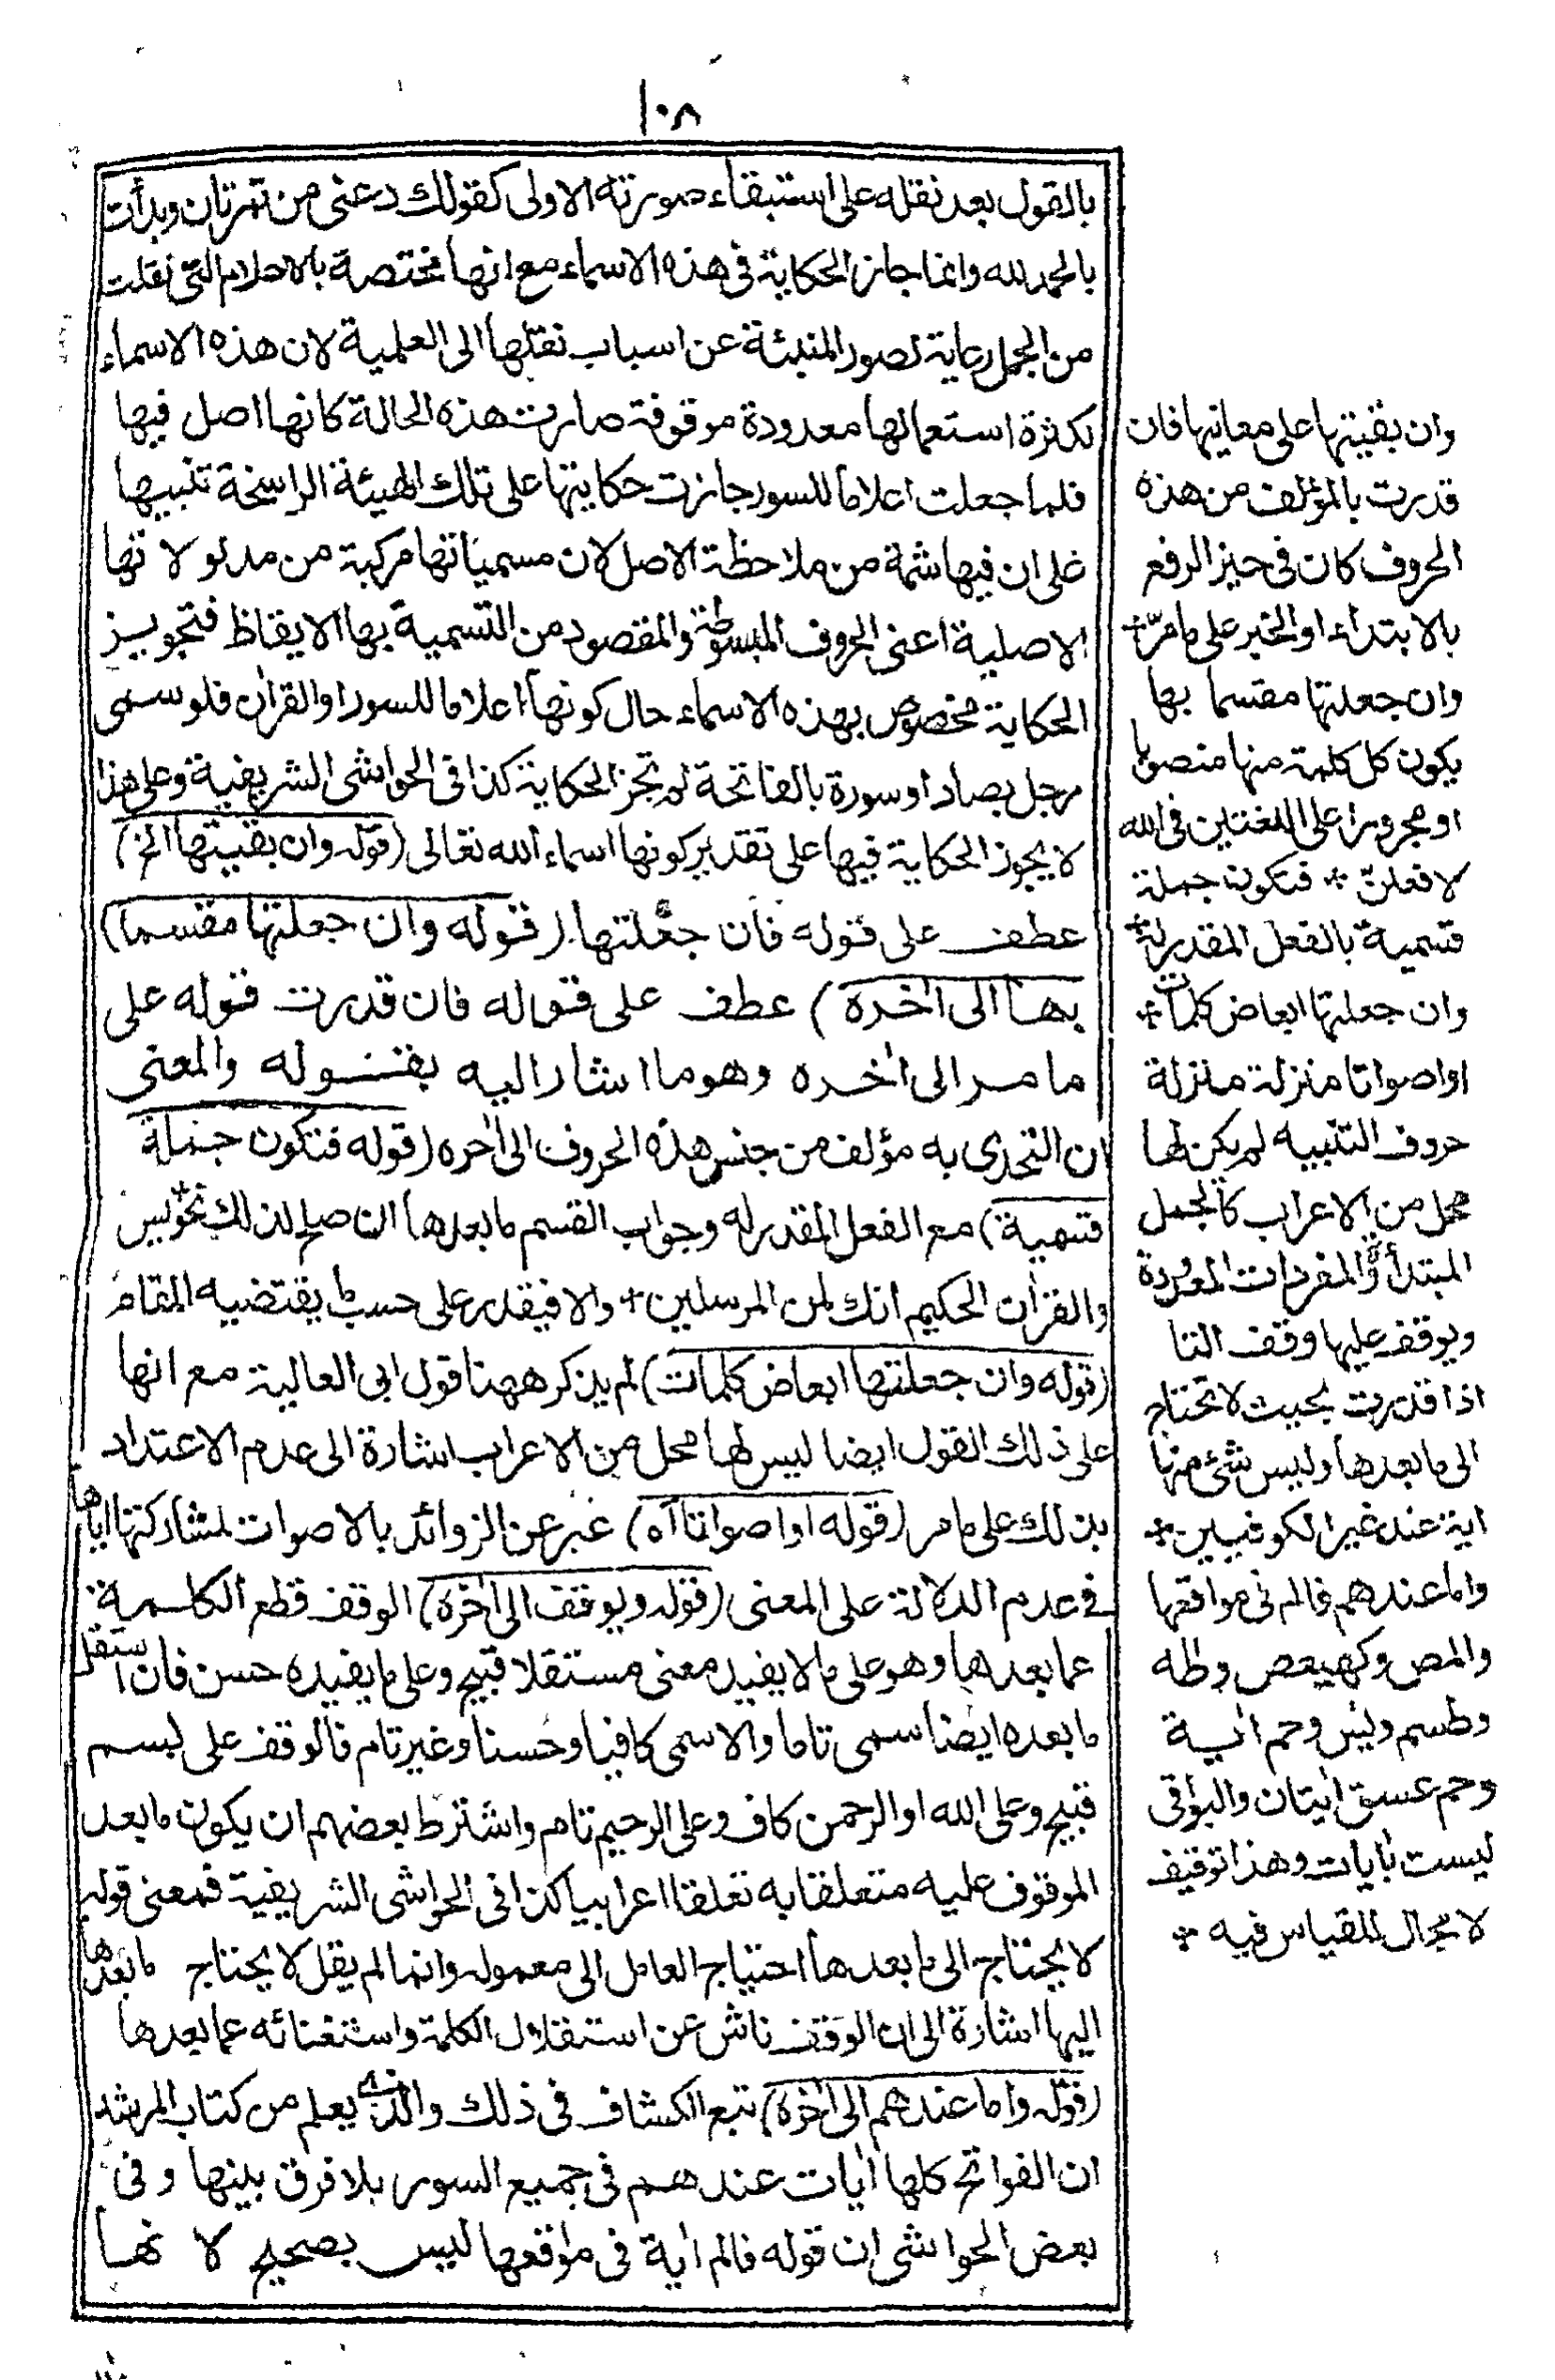 ١٠٨
بالقول بعد نقله على استبقاء صورته الاولى كقولك دعنى من تمرتان وبدأت
بالحمد لله وانما جاز الحكاية فى هذه الاسماء مع انها مختصة بالاعلام التى نقلت
من الجمل رعاية لصور المنبئة عن اسباب نقلها الى العلمية لان هذه الاسماء
لكثرة استعمالها معدودة موقوفة صارت هذه الحالة كانها اصل فيها
فلما جعلت اعلاما للسور جازت حكايتها على تلك الهيئة الراسخة تنبيها
على ان فيها شمة من ملاحظة الاصل لان مسمياتها مركبة من مدلولاتها
الاصلية اعنى الحروف المبسوطة والمقصود من التسمية بها الايقاظ فتجويز
الحكاية مخصوص بهذه الاسماء حال كونها اعلاما للسور او القرآن فلو سمى
رجل بصاد او سورة بالفاتحة لم تجز الحكاية كذا فى الحواشى الشريفية وعلى هذا
لا يجوز الحكاية فيها على تقدير كونها اسماء الله تعالى (قوله وان بقيتها الخ)
عطف على قوله فان جعلتها (قوله وان جعلتها مقسما)
بها الى آخره) عطف على قوله فان قدرت قوله على
ما مر الى آخره وهو ما اشار اليه بقوله والمعنى
ان التحدى به مؤلف من جنس هذه الحروف الى آخره (قوله فتكون جملة
قسمية) مع الفعل المقدر له وجواب القسم ما بعدها ان صلح لذلك نحو يس
والقرآن الحكيم انك لمن المرسلين + والا فيقدر على حسب ما يقتضيه المقام
(قوله وان جعلتها ابعاض كلمات) لم يذكر ههنا قول ابى العالية مع انها
على ذلك القول ايضا ليس لها محل من الاعراب اشارة الى عدم الاعتداد
بذلك على ما مر (قوله او اصواتا آه) عبر عن الزوائد بالاصوات لمشاركتها اياها
فى عدم الدلالة على المعنى (قوله ويوقف الى آخره) الوقف قطع الكلمة
عما بعدها وهو على ما لا يفيد معنى مستقلا قبيح وعلى ما يفيده حسن فان استقل
ما بعده ايضا سمى تاما والا سمى كافيا وحسنا وغير تام فالوقف على بسم
قبيح وعلى الله او الرحمن كاف وعلى الرحيم تام واشترط بعضهم ان يكون ما بعد
الموقوف عليه متعلقا به تعلقا اعرابيا كذا فى الحواشى الشريفية فمعنى قوله
لا يحتاج الى ما بعدها احتياج العامل الى معموله وانما لم يقل لا يحتاج ما بعدها
اليها اشارة الى ان الوقف ناش عن استقلال الكلمة واستغنائه عما بعدها
(قوله واما عندهم الى آخره) تبع الكشاف فى ذلك والذى يعلم من كتاب المرشد
ان الفواتح كلها آيات عندهم فى جميع السور بلا فرق بينها وفى
بعض الحواشى ان قوله فالم آية فى مواقعها ليس بصحيح لانها
وان بقيتها على معانيها فان
قدرت بالمؤلف من هذه
الحروف كان فى حيز الرفع
بالابتداء او الخبر على ما مرّ +
وان جعلتها مقسما بها
يكون كل كلمة منها منصوبا
او مجرورا على اللغتين فى الله
لافعلنّ + فتكون جملة
قسمية بالفعل المقدر له +
وان جعلتها ابعاض كلمات +
او اصواتا منزلة منزلة
حروف التنبيه لم يكن لها
محل من الاعراب كالجمل
المبتدأة والمفردات المعدودة
ويوقف عليها وقف التا
اذا قدرت بحيث لا تحتاج
الى ما بعدها وليس شئ منها
آية عند غير الكوفيين +
واما عندهم فالم فى مواقعها
والمص وكهيعص وطه
وطسم ويس وحم آية
وحم عسق آيتان والبواقى
ليست بآيات وهذا توقيف
لا مجال للقياس فيه +